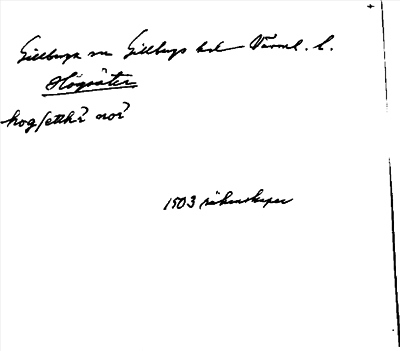 Gillberga sn Gillbergs hd Värml. l.
Högsäter
hogsetthr nor
1503 räkenskaper